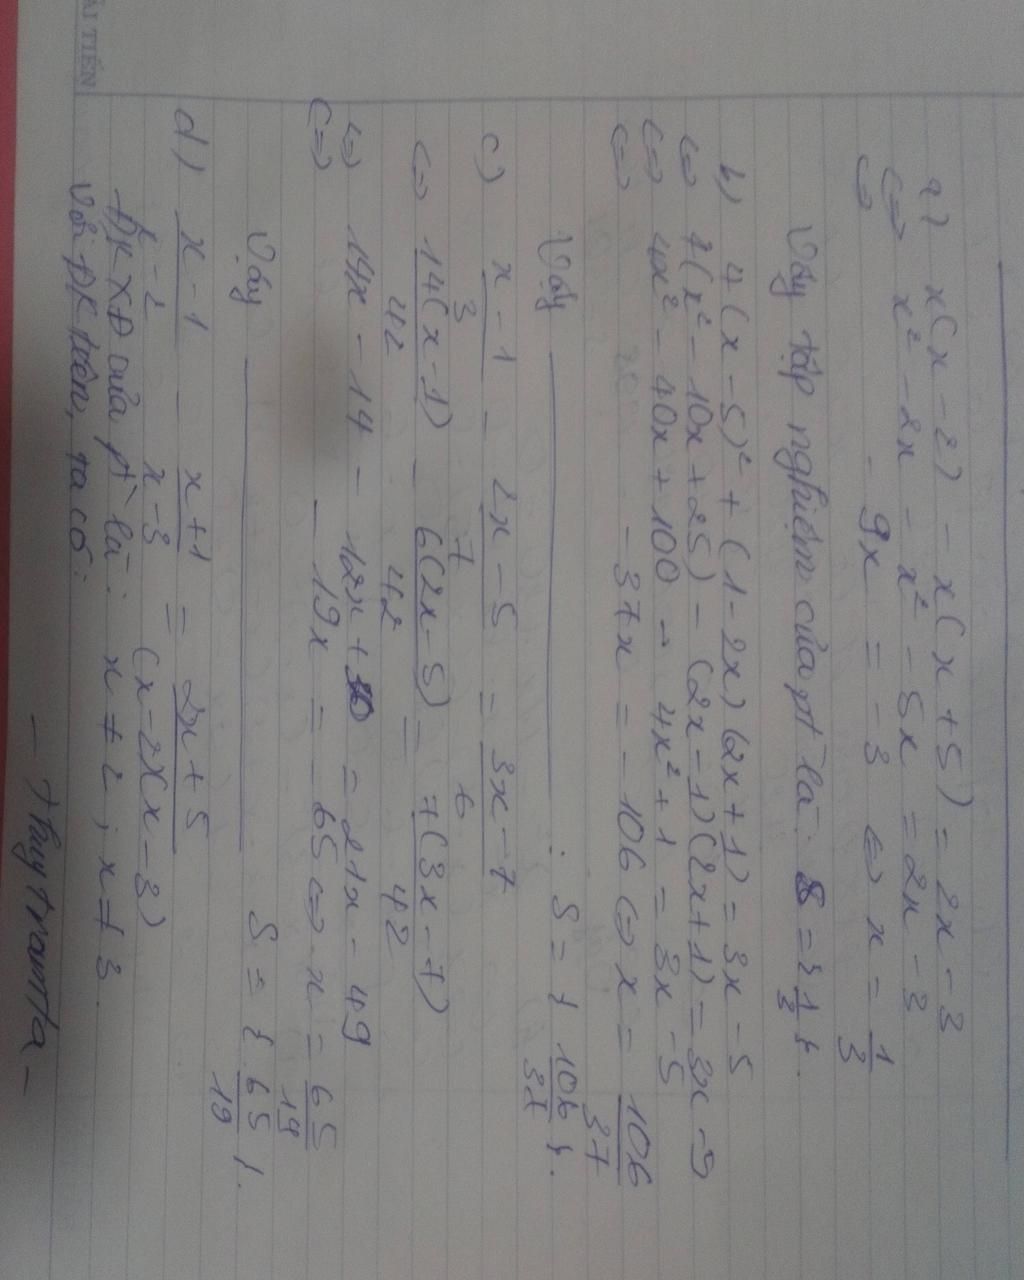 ẢI TIẾN
a) x(x-2) - x(x+5) = 2x-3
<=> x² - 2x - x² - 5x = 2x - 3
<=> -9x = -3 <=> x = 1/3
Vậy tập nghiệm của pt là: S = {1/3}.
b) 4(x-5)² + (1-2x)(2x+1) = 3x-5
<=> 4(x² - 10x + 25) - (2x-1)(2x+1) = 3x-5
<=> 4x² - 40x + 100 - 4x² + 1 = 3x-5
<=> -37x = -106 <=> x = 106/37
Vậy ——— : S = { 106/37 }.
c) (x-1)/3 - (2x-5)/7 = (3x-7)/6
<=> 14(x-1)/42 - 6(2x-5)/42 = 7(3x-7)/42
<=> 14x - 14 - 12x + 30 = 21x - 49
<=> -19x = -65 <=> x = 65/19
Vậy ——— S = { 65/19 }.
d) (x-1)/(x-2) - (x+1)/(x-3) = (2x+5)/((x-2)(x-3))
ĐKXĐ của pt là: x ≠ 2; x ≠ 3.
Với ĐK trên, ta có:
- Thuytramta -